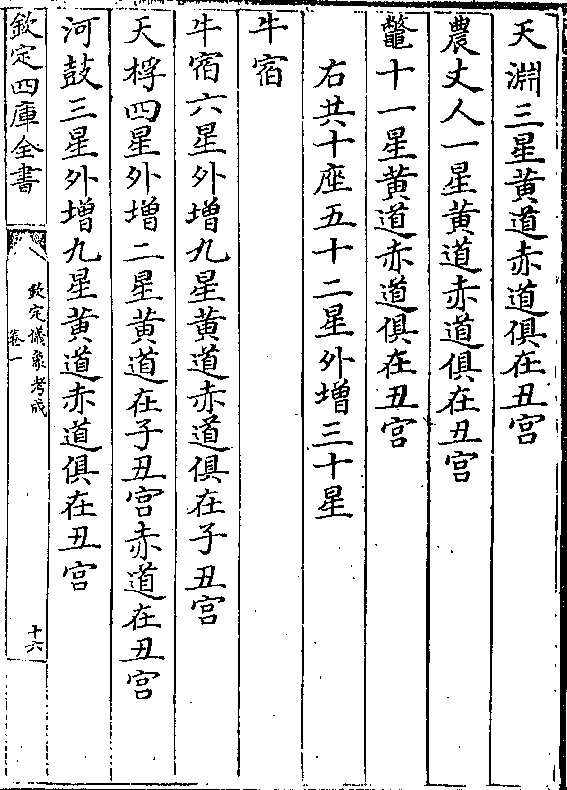 天淵三星黃道赤道俱在丑宫
農丈人一星黃道赤道俱在丑宫
鼈十一星黃道赤道俱在丑宫
右共十座五十二星外增三十星
牛宿
牛宿六星外增九星黃道赤道俱在子丑宫
天桴四星外增二星黃道在子丑宫赤道在丑宫
河鼓三星外增九星黃道赤道俱在丑宫
欽定四庫全書
欽定儀象考成
卷一
十六